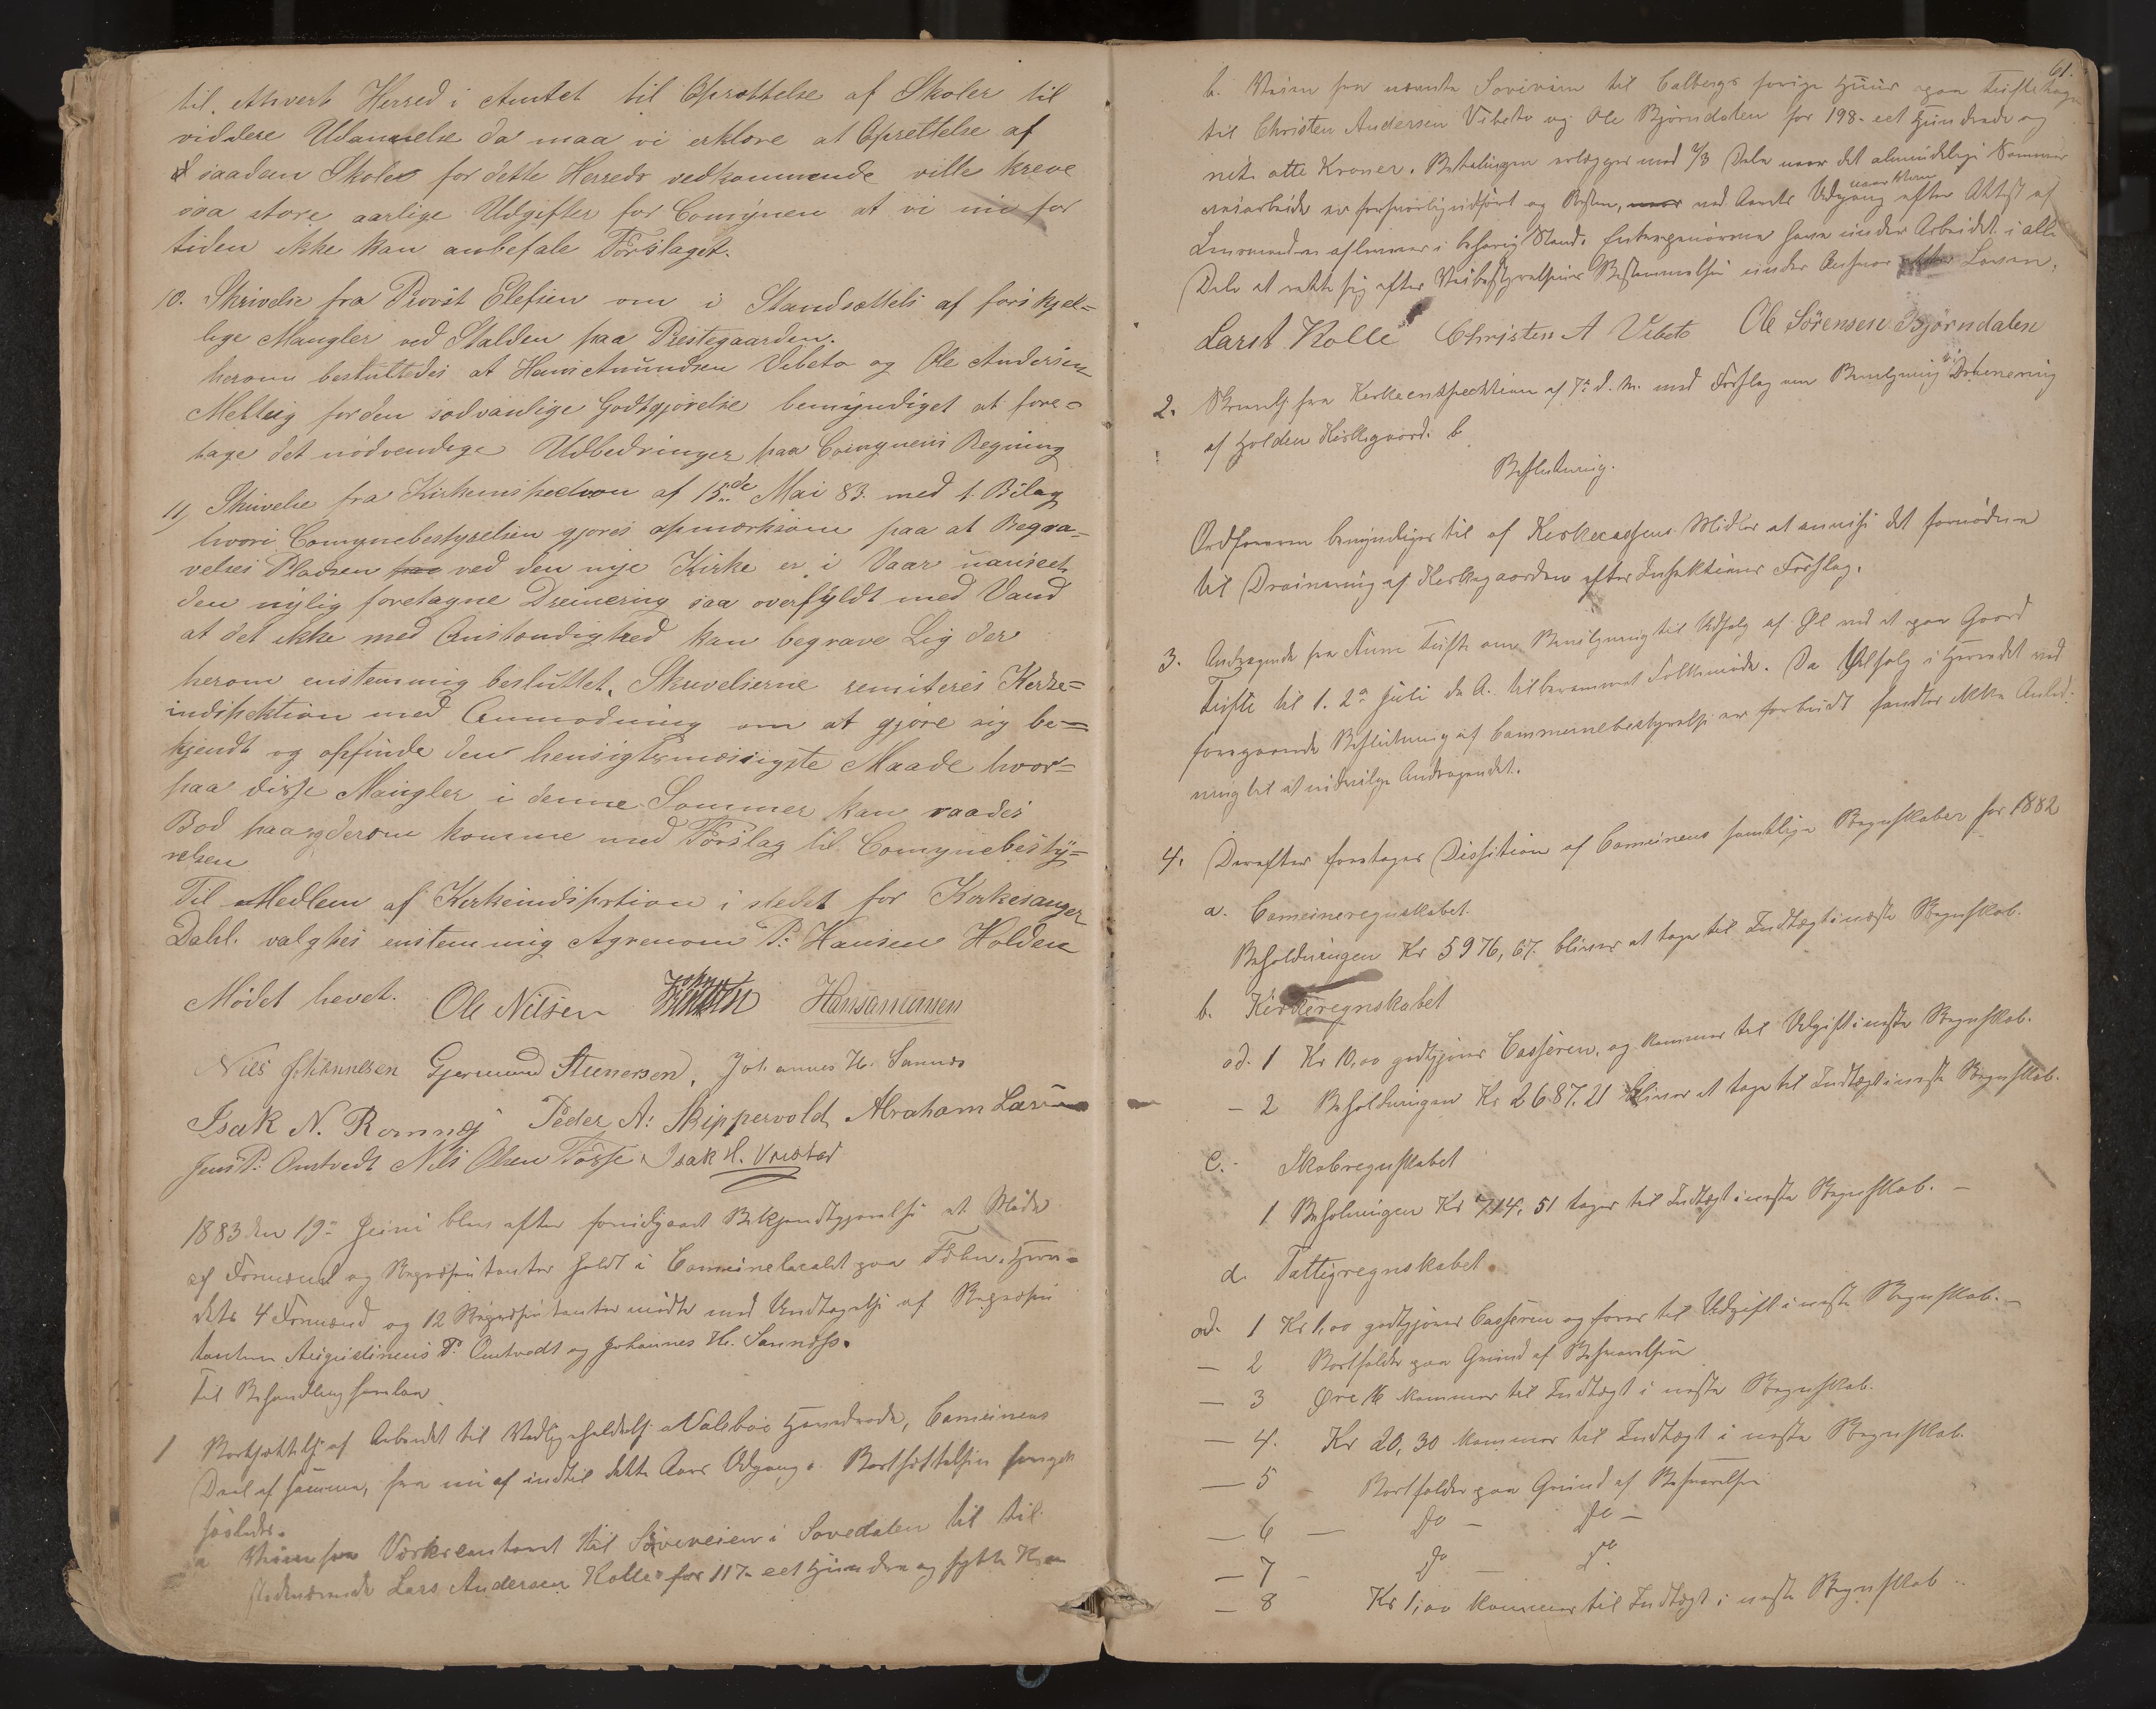 til ethvert Herred i Amtet til Oprettelse af Skoler til
viddere Udannelse da maa vi erklære at Oprettelse af
saadan Skoler for dette Herreds vedkommende ville kreve
saa store aarlige Udgifter for Comynen at vi nu for
tiden ikke kan anbefale Forslaget.
10. Skrivelse fra Provst Elefsen om i Standsættels af forskjel=
lige Mangler ved Stalden paa Prestegaarden.
herom besluttedes at Hans Amundsen Vibeto og Ole Andersen
for den sædvanlige Godtgjørelse bemyndiget at fore=
tage det nødvendige Udbedringer paa Comynens Regning
11, Skrivelse fra Kirkeinspection af 15de Mai 83. med 1. Bilag
hvori Comynebestyrelsen gjøres opmærksom paa at Begra=
velses Pladsen ved den nye Kirke er i Vaar uanseet
den nylig foretagne Dreinering saa overfyldt med Vand
at det ikke med Anstændighed kan begrave Lig der
herom enstemmig besluttet. Skrivelserne remiteres Kerke=
indspektion med Anmodning om at gjøre sig be=
kjendt og opfinde den hensigtsmæssigste Maade hvor=
paa disse Mangler i denne Sommer kan raades
Bod paa og derom komme med Forslag til Comynebesty=
relsen
Til Medlem af Kirkeindspektion i stedet for Kirkesanger
Dahl. valgtes enstemmig Agronom P: Hansen Holden
Mødet hevet. Ole Nilsen Hansamunsen
Nils Johannesen Gjermund Steenersen, Johannes H. Sannes
Isak N. Romnes Peder A: Skippervold Abraham Larsen
Jens P: Omtvedt Nils Olsen Tosse, Isak H. Vristad
1883 den 19de Juni blev efter foreudgaaet Bekjendtgjørelse et Møde
af Formænd og Repræsentanter holdt i Comunelocalet paa Herre=
dets 4 Formænd og 12 Repræsentanter mødte med Undtagelse af Repræsen
tanterne Augustinus P. Omtvedt og Johannes H. Sannes.
Til Behandling forelaa
1 Bortsættelse af Arbeidet til Vedligeholdelse Valebø Comunens
Deel af samme, fra nu af indtil dette Aars Udgang. Bortsættelsen foregik
saaledes.
a Veien fra Værkscontoret til Søveveien i Sovedalen til til
stedeværende Lars Andersen Kolle for 117 eet Hundre og sytten
61.
b. Veien fra nævnte Soveveien til Calbergs forige Huus paa Tufte
til Christen Andersen Vibeto og Ole Bjørndalen for 198- eet Hundrede og
niti otte Kroner. Betalingen erlægges med 2/3 Dele naar det almindelige Sommer
veiarbeide er forsvarlig udført og Resten, ved Aarets Udgang efter Attest af
Lensmanden afleveres i behørig Stand. Entreprenørerne have under Arbeidet i alle
Dele at rette sig efter Veibestyrelsens Bestemmelse under Ansvar efter Loven.
Larst Kolle Christen A Vibeto Ole Sørensen Bjørndalen
2. Skrivelse fra Kirkeenspektion af 7de d. M. med Forslag om Bevilgning til Dræenering
af Holden Kirkegaard. b
Beslutning.
Ordføreren bemyndiges til af Kerkecassens Midler at anvise det fornødne
til Drainering af Kerkegaarden efter Inspektions Forslag.
3. Andragende fra Anne Tufte om Bevilgning til Udsalg af Øl ved et paa Gaard
Tufte til 1. 2den Juli d. A. tilberammet Folkemøde. Da Ølsalg i Herredet ved
foregaaende Beslutning af Communebestyrelse er forbudt fandtes ikke Anled=
ning til at indvilge Andragendet.
4. Derefter foretages Dissition af Comunens samtlige Regnskaber for 1882
a. Comuneregnskabet.
Beholdningen Kr 5976,67. bliver at tage til Indtægt i næste Regnskab.
b. Kirkeregnskabet
ad. 1 Kr 10,00 godtgjøres Casseren, og kommer til Udgift i næste Regnskab.
— 2 Beholdningen Kr 2687.21 bliver at tage til Indtægt i næste Regnskab.
c. Skoleregnskabet
1 Beholningen Kr 714,51 tages til Indtægt i næste Regnskab. —
d. Fattigregnskabet.
ad. 1 Kr 1,00 godtgjøres Casseren og føres til Udgift i næste Regnskab. —
— 2 Bortfalder paa Grund af Besvarelsen
— 3 Øre 16 kommer til Indtægt i næste Regnskab.
— 4. Kr 20,30 kommer til Indtægt i næste Regnskab.
— 5 Bortfalder paa Grund af Besvarelsen
— 6 — do — do —
— 7 — do — do
— 8 Kr 1,00 kommer til Indtægt i næste Regnskab